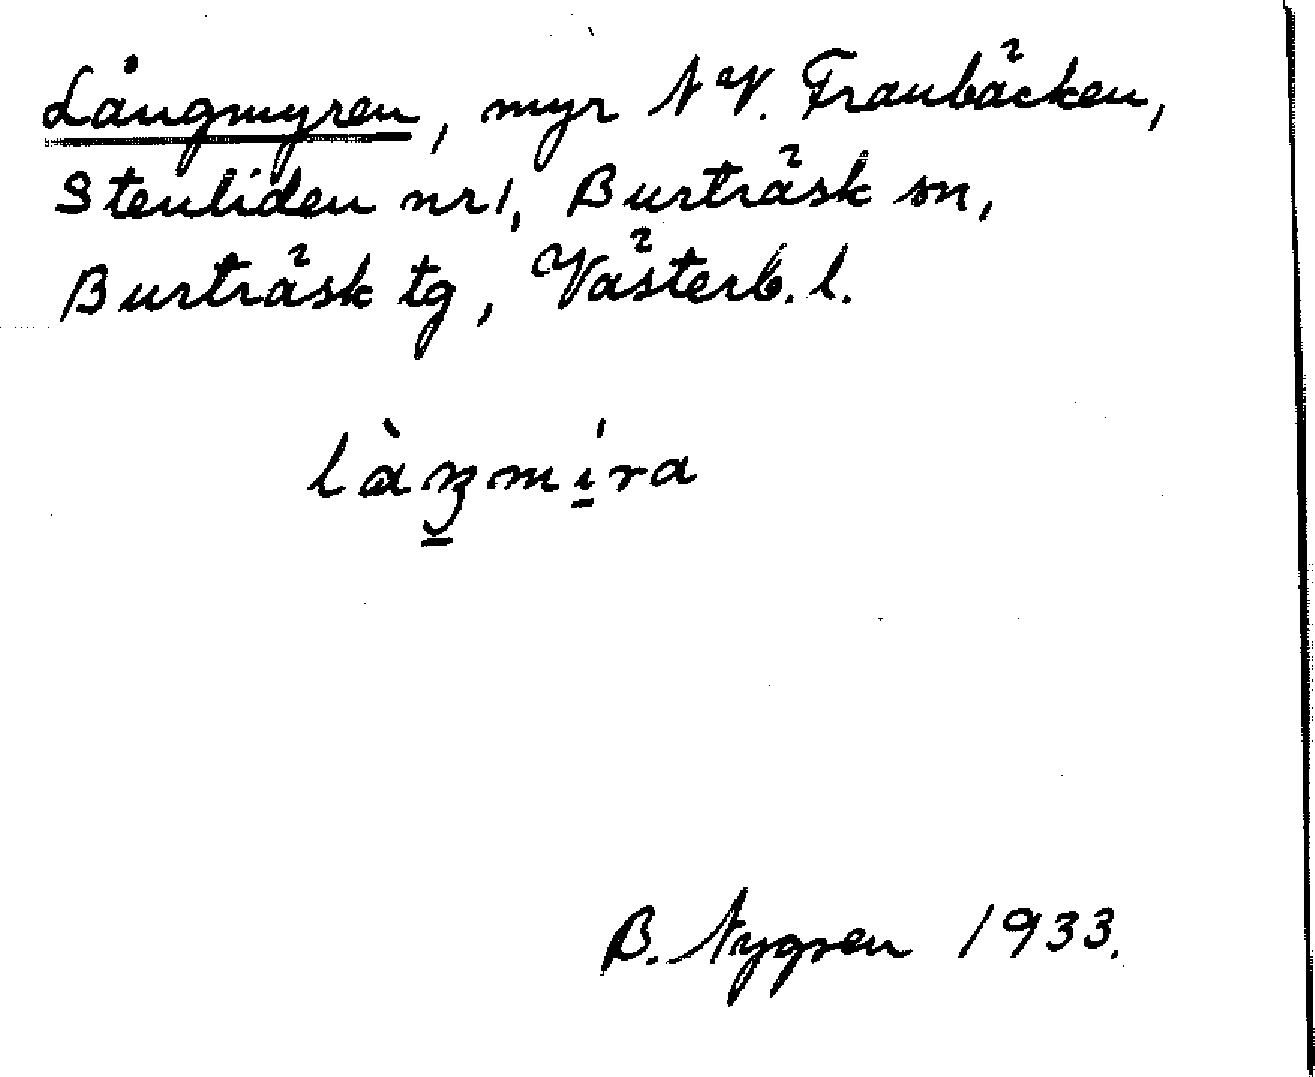 Långmyren, myr NV. Franbäcken,
Stenliden nr 1, Burträsk sn,
Burträsk tg, Västerb. l.
làŋmíra
B. Nygren 1933.